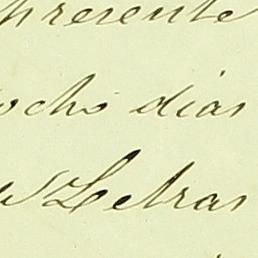 presente
ocho dias
Letras